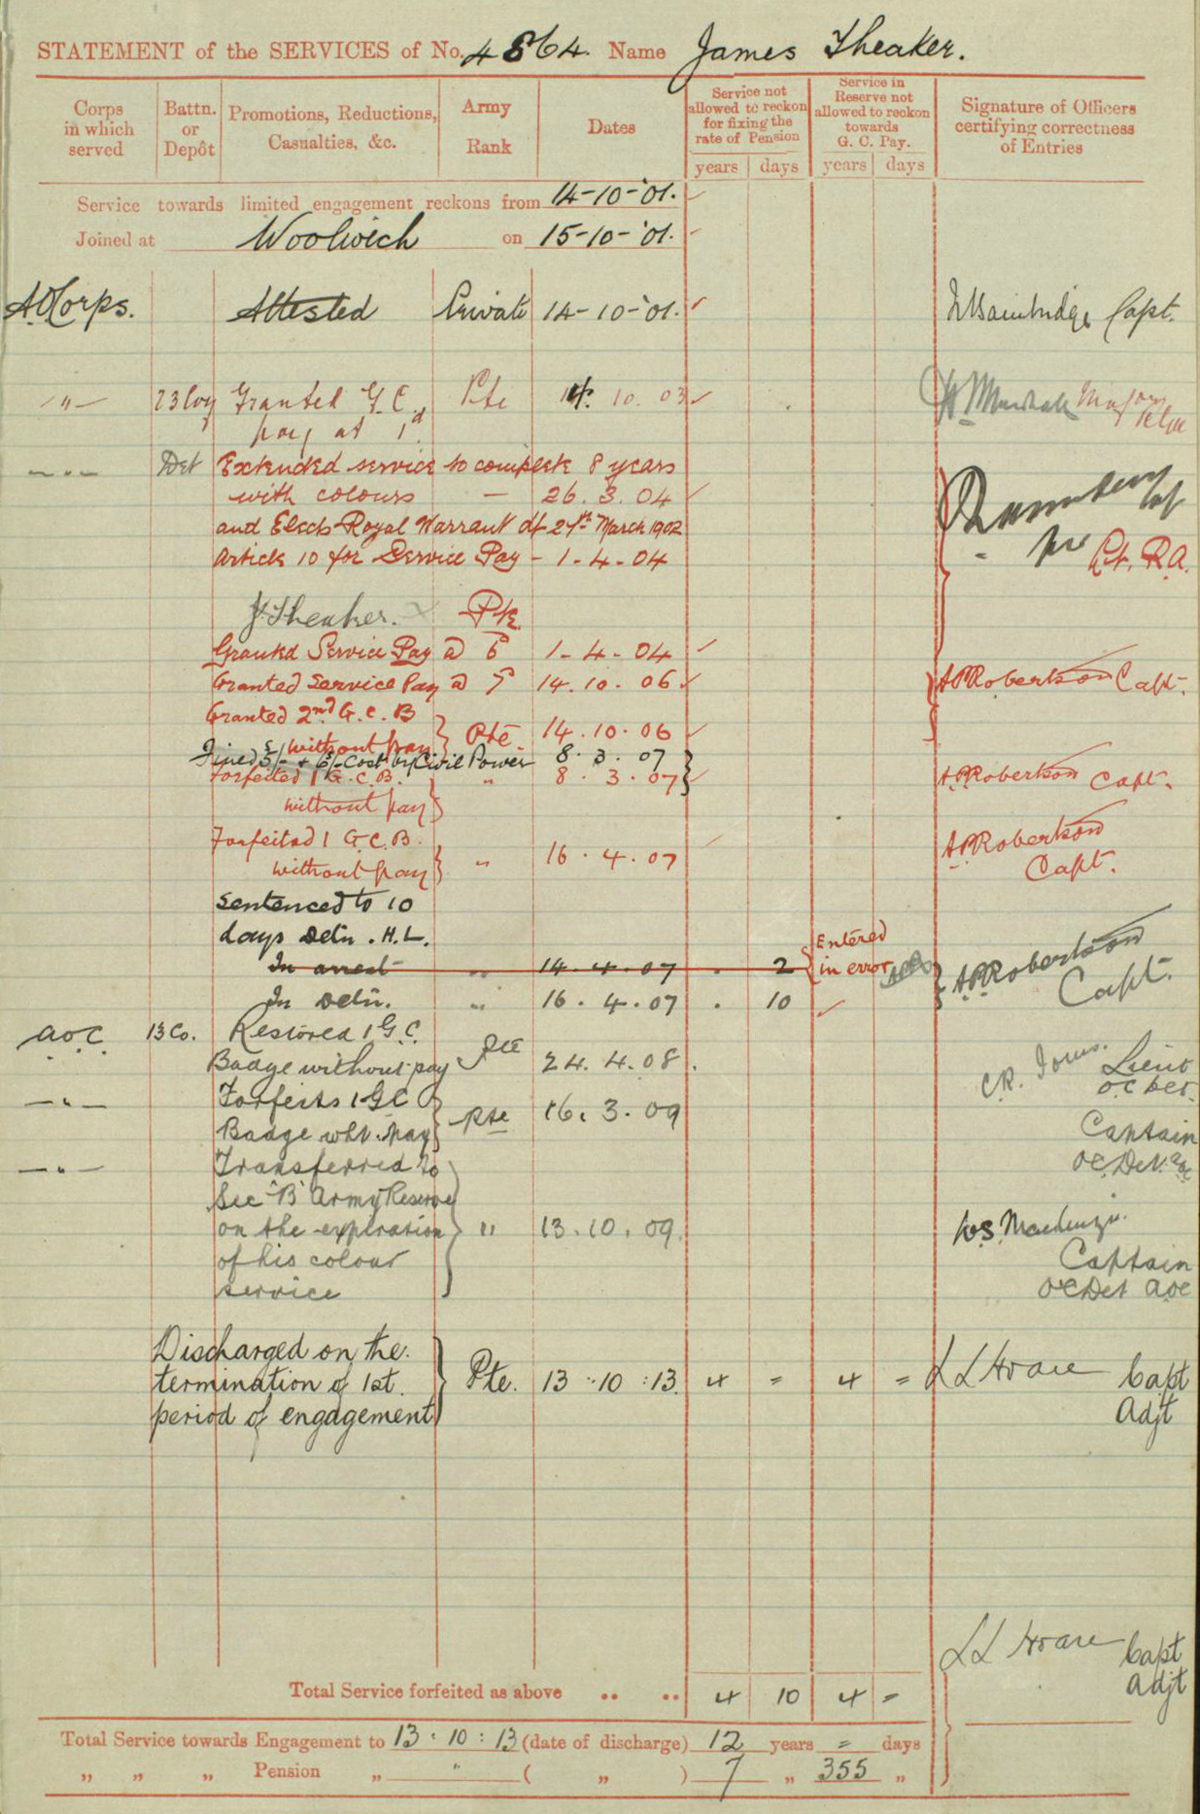 STATEMENT of the SERVICES of No. 4864. Name James Theaker.
Corps in which served
Battn. or Depôt
Promotions, Reductions, Casualties, &c.
Army Rank
Dates
Service not allowed to reckon for fixing the rate of Pension
years days
Service in Reserve not allowed to reckon towards G. C. Pay.
years days
Signature of Officers certifying correctness of Entries
Service towards limited engagement reckons from 14-10-'01.
Joined at Woolwich on 15-10-'01.
A.O.Corps. Attested Private 14-10-'01. Bainbridge Capt.
-"- 23 Coy Granted G.C. Pte 14. 10. 03 Major
pay at 1d
-"- Det Extended service to complete 8 years
with colours - 26.3.04
and Elects Royal Warrant of 27th March 1902
Article 10 for Service Pay - 1-4-04 Lt. R.A.
J. Theaker. Pte
Granted Service Pay @ 6d 1-4-04
Granted Service Pay @ 7d 14.10.06 A.P.Robertson Capt.
Granted 2nd G.C.B
without pay } Pte 14.10.06
Fined 5/- & 6/- Cost by Civil Power 8.3.07
Forfeited 1 G.C.B. " 8.3.07 A.P.Robertson Capt.
without pay
Forfeited 1 G.C.B.
without pay } " 16.4.07 A.P.Robertson Capt.
Sentenced to 10
days Detn. H.L.
In arrest " 14.4.07 . 2 Entered in error
In Detn. " 16.4.07 . 10 A.P.Robertson Capt.
A.O.C. 13 Co. Restored 1 G.C.
Badge without pay Pte 24.4.08. C.R. Lieut
O.C. Det.
-"- Forfeits 1 G.C
Badge wht. pay } Pte 16.3.09 Captain
O.C. Det.
-"- Transferred to
Sec "B" Army Reserve
on the expiration " 13.10.09. W.S. Mackenzie.
of his colour Captain
service OC Det AOC
Discharged on the
termination of 1st. } Pte. 13.10:13. 4 = 4 = L L Hoare Capt
period of engagement Adjt
L L Hoare Capt
Adjt
Total Service forfeited as above .. .. 4 10 4 =
Total Service towards Engagement to 13.10:13 (date of discharge) 12 years = days
" " " Pension " " ( " ) 7 " 355 "